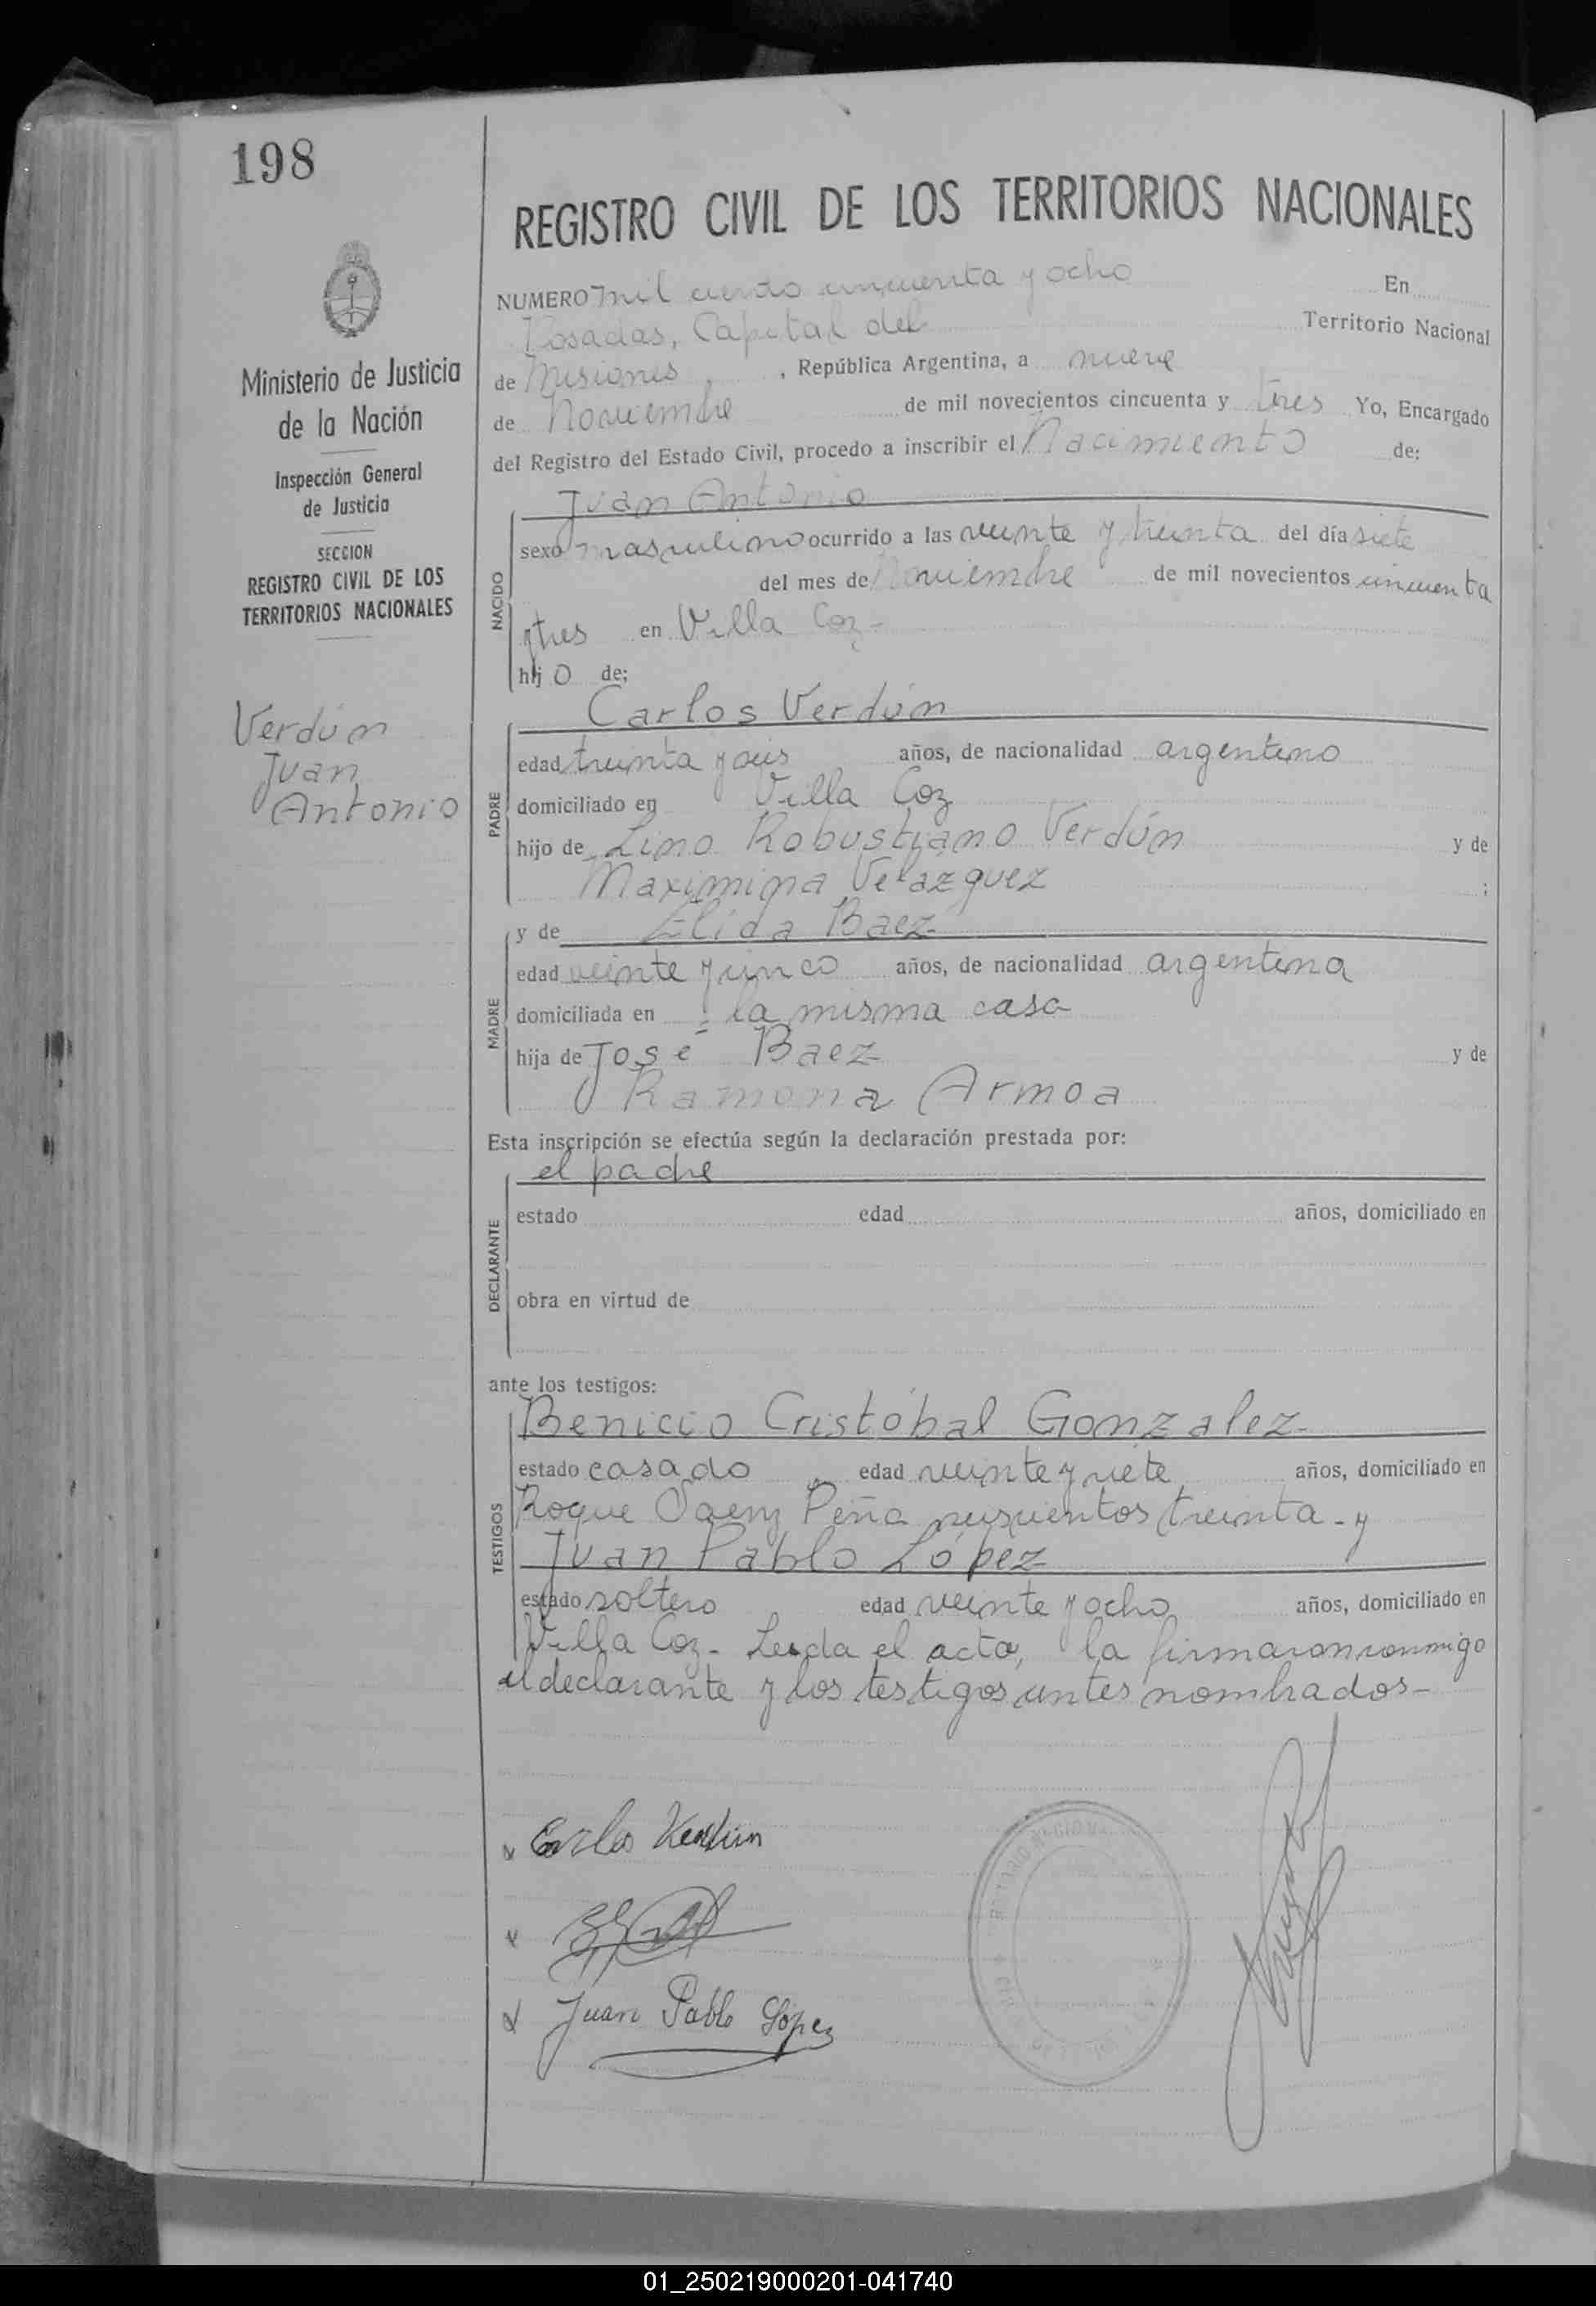 198
REGISTRO CIVIL DE LOS TERRITORIOS NACIONALES
NUMERO mil ciento cincuenta y ocho En
Posadas, Capital del Territorio Nacional
de Misiones, República Argentina, a nueve
de Noviembre de mil novecientos cincuenta y tres Yo, Encargado
del Registro del Estado Civil, procedo a inscribir el Nacimiento de:
Ministerio de Justicia
de la Nación
Inspección General
de Justicia
SECCION
REGISTRO CIVIL DE LOS
TERRITORIOS NACIONALES
Verdún
Juan
Antonio
NACIDO
Juan Antonio
sexo masculino ocurrido a las veinte y treinta del día siete
del mes de Noviembre de mil novecientos cincuenta
y tres en Villa Coz -
hijo de;
PADRE
Carlos Verdún
edad treinta y años, de nacionalidad argentino
domiciliado en Villa Coz
hijo de Lino Robustiano Verdún y de
Maximina Velázquez ;
MADRE
y de Elida Baez-
edad veinte y cinco años, de nacionalidad argentina
domiciliada en la misma casa
hija de José Baez y de
Ramona Armoa
Esta inscripción se efectúa según la declaración prestada por:
DECLARANTE
el padre
estado edad años, domiciliado en
obra en virtud de
ante los testigos:
TESTIGOS
Benicio Cristóbal Gonzalez-
estado casado edad veinte y siete años, domiciliado en
Roque Saenz Peña treinta - y
Juan Pablo López
estado soltero edad veinte y ocho años, domiciliado en
Villa Coz - Leida el acta, la firmaron conmigo
el declarante y los testigos antes nombrados-
Carlos Verdun
Juan Pablo López
01_250219000201-041740